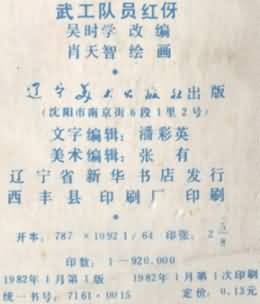 武工队员红伢
吴时学 改编
肖天智 绘画
辽宁美术出版社出版
(沈阳市南京街6段1里2号)
文字编辑：潘彩英
美术编辑：张 有
辽宁省新华书店发行
西丰县印刷厂印刷
开本：787×1092 1/64 印张：2 5/8
印数：1—920,000
1982年1月第1版 1982年1月第1次印刷
统一书号：7161·0015 定价：0.13元